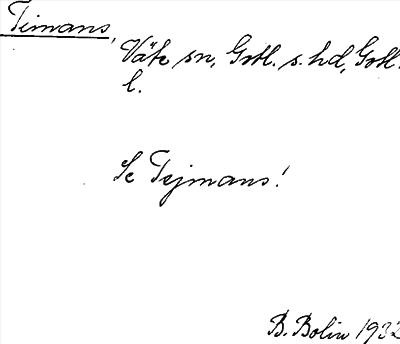 Timans,
Väte sn, Gotl. s. hd, Gotl.
l.
Se Tejmans!
B. Bolin 1932